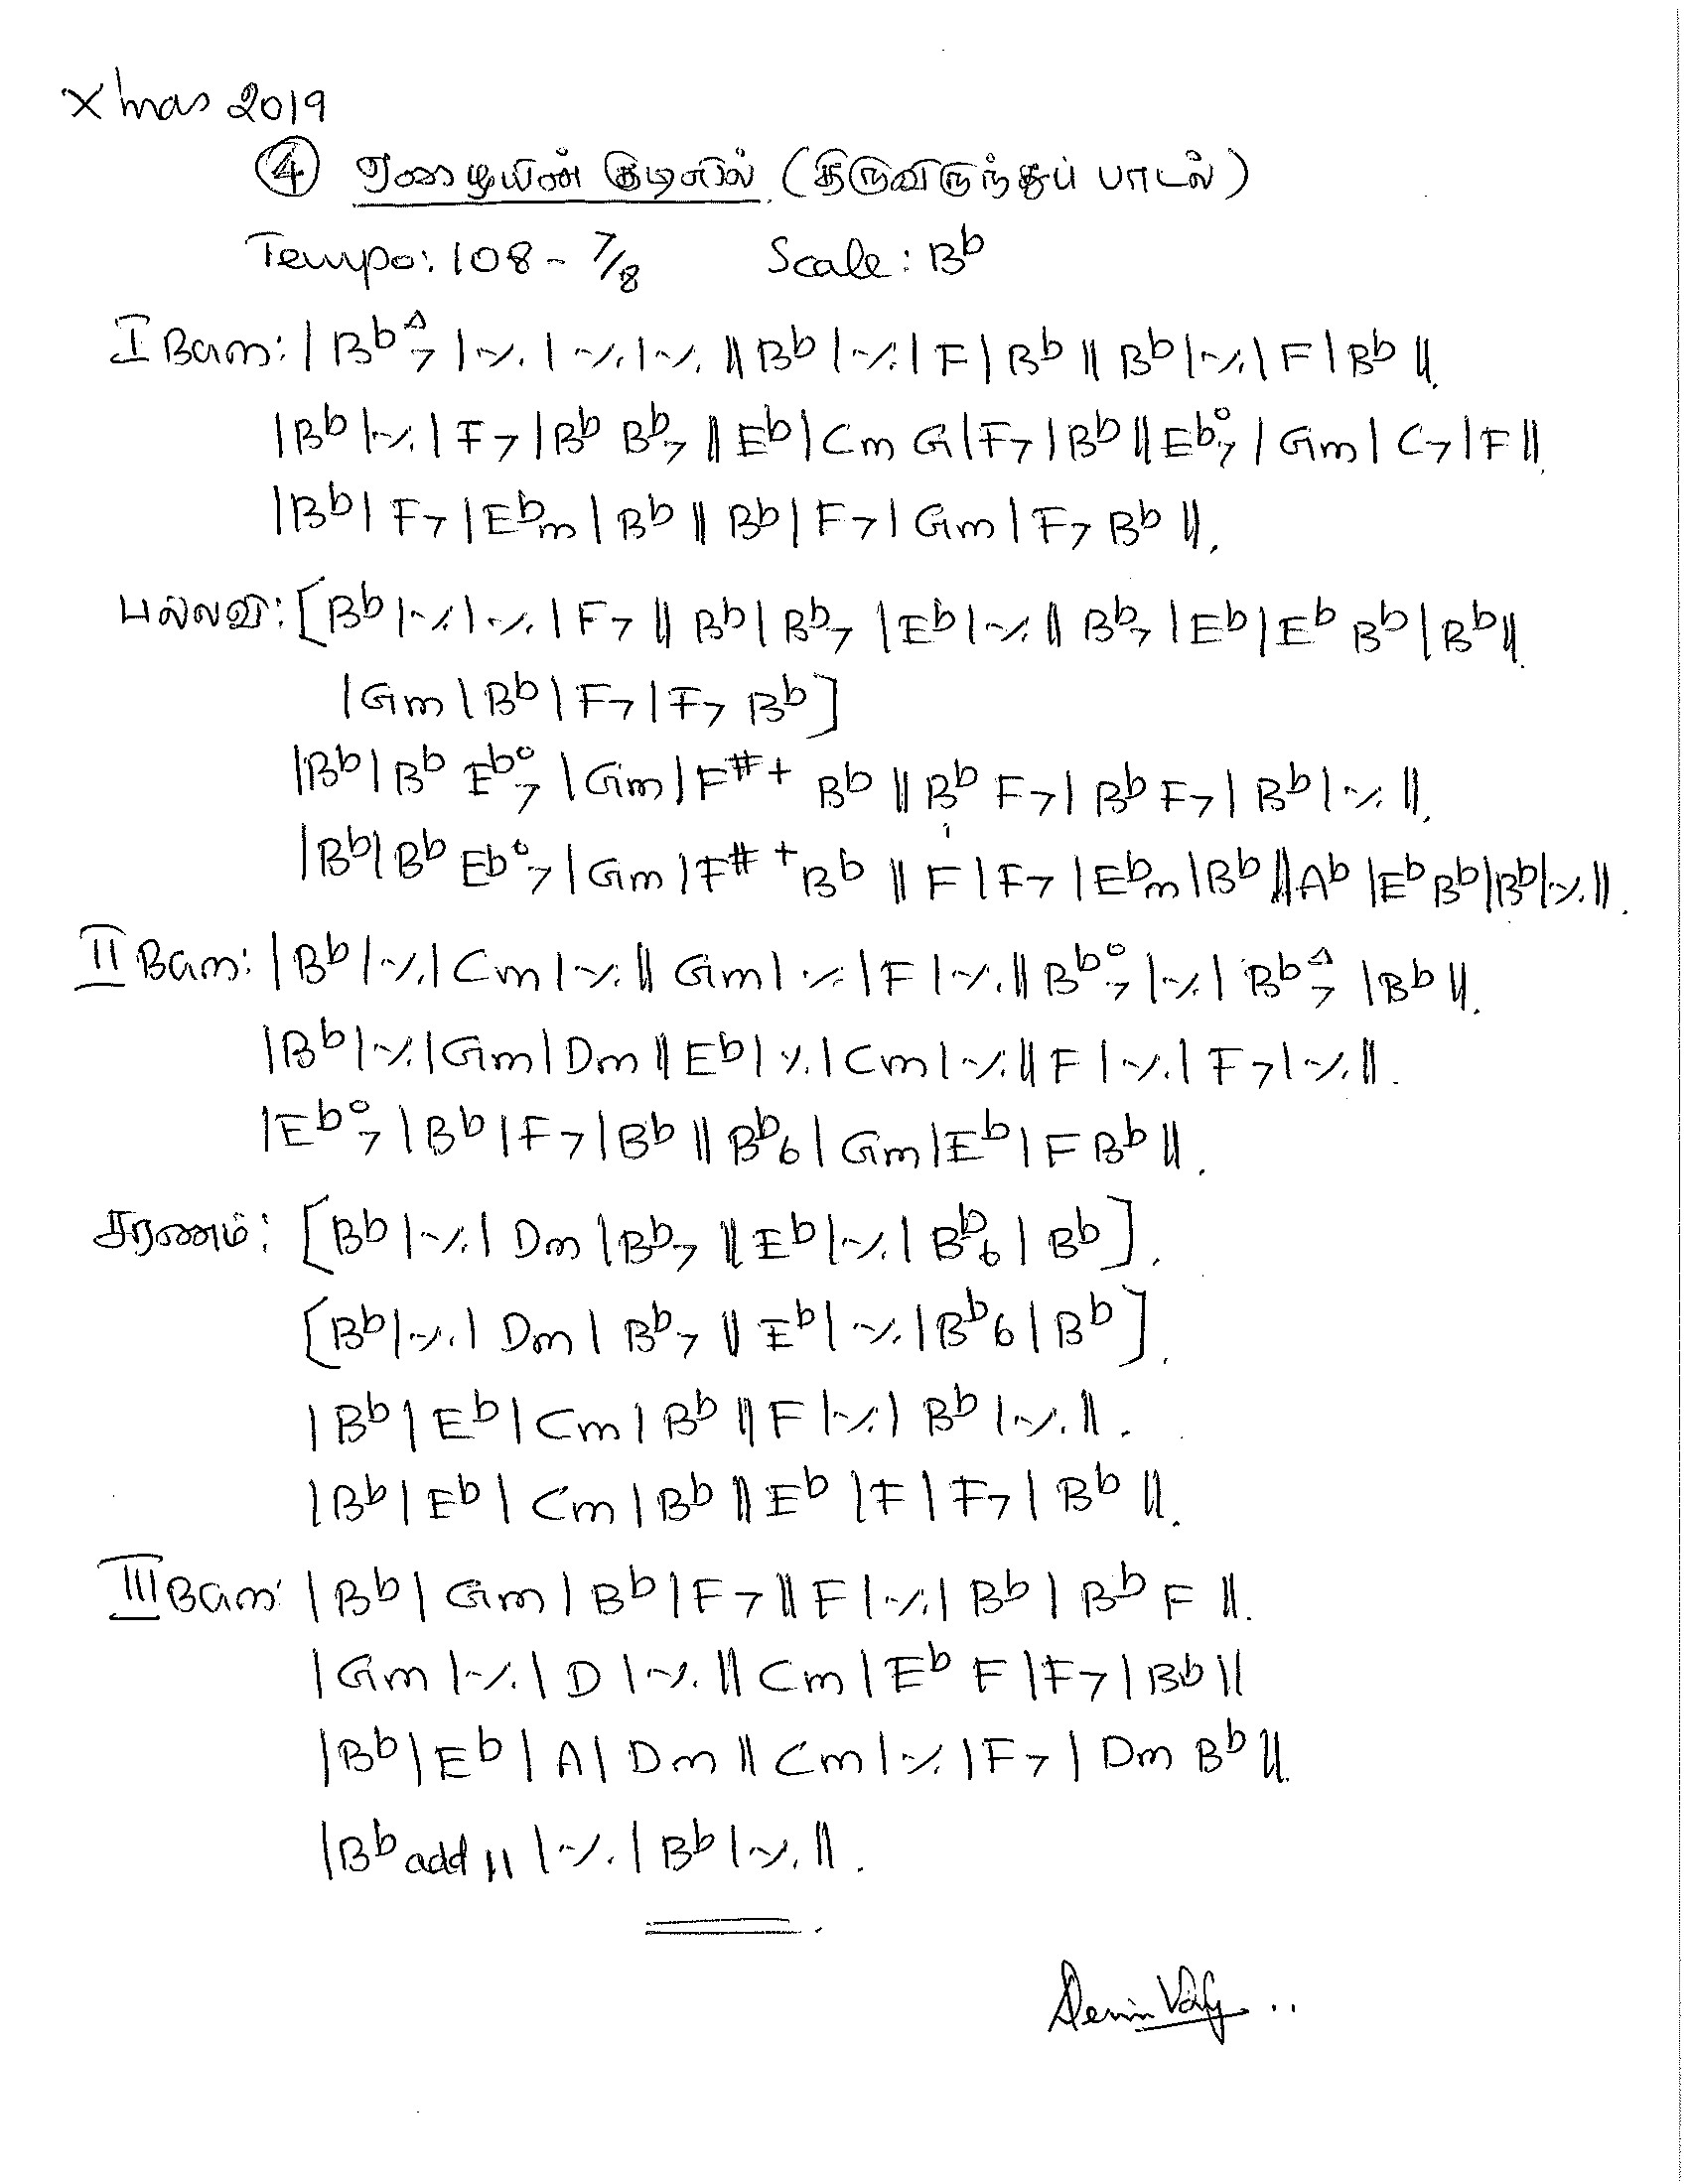 Xmas 2019
④ ஏழையின் குடிலில் (திருவிருந்துப் பாடல்)
Tempo: 108 - 7/8 Scale: Bb
I Bam: | Bb△7 | ٪ | ٪ | ٪ || Bb | ٪ | F | Bb || Bb | ٪ | F | Bb ||.
| Bb | ٪ | F7 | Bb Bb7 || Eb | Cm G | F7 | Bb || Eb°7 | Gm | C7 | F ||.
| Bb | F7 | Ebm | Bb || Bb | F7 | Gm | F7 Bb ||.
பல்லவி: [Bb | ٪ | ٪ | F7 || Bb | Bb7 | Eb | ٪ || Bb7 | Eb | Eb Bb | Bb ||.
| Gm | Bb | F7 | F7 Bb ]
| Bb | Bb Eb°7 | Gm | F#+ Bb || Bb F7 | Bb F7 | Bb | ٪ ||.
| Bb | Bb Eb°7 | Gm | F#+ Bb || F | F7 | Ebm | Bb || Ab | Eb Bb | Bb | ٪ ||.
II Bam: | Bb | ٪ | Cm | ٪ || Gm | ٪ | F | ٪ || Bb°7 | ٪ | Bb△7 | Bb ||.
| Bb | ٪ | Gm | Dm || Eb | ٪ | Cm | ٪ || F | ٪ | F7 | ٪ ||.
| Eb°7 | Bb | F7 | Bb || Bb6 | Gm | Eb | F Bb ||.
சரணம்: [Bb | ٪ | Dm | Bb7 || Eb | ٪ | Bb6 | Bb ].
[Bb | ٪ | Dm | Bb7 || Eb | ٪ | Bb6 | Bb ].
| Bb | Eb | Cm | Bb || F | ٪ | Bb | ٪ ||.
| Bb | Eb | Cm | Bb || Eb | F | F7 | Bb ||.
III Bam: | Bb | Gm | Bb | F7 || F | ٪ | Bb | Bb F ||.
| Gm | ٪ | D | ٪ || Cm | Eb F | F7 | Bb ||
| Bb | Eb | A | Dm || Cm | ٪ | F7 | Dm Bb ||.
| Bb add 11 | ٪ | Bb | ٪ ||.